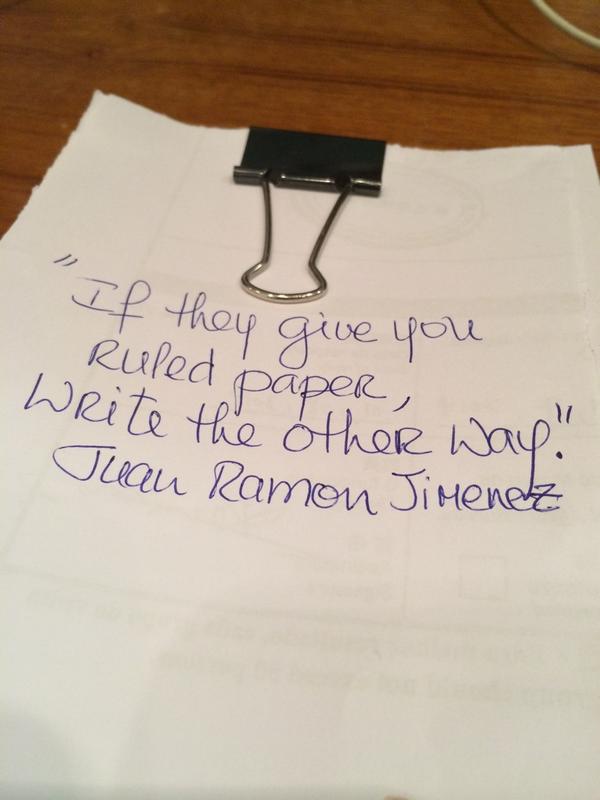 "If they give you
Ruled paper,
Write the other way."
Juan Ramon Jimenez